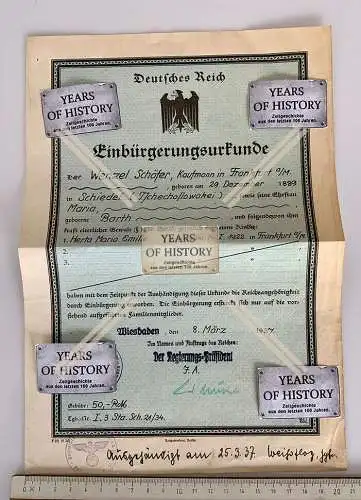 Deutsches Reich
YEARS OF HISTORY
Zeitgeschichte
aus den letzten 100 Jahren.
YEARS OF HISTORY
Zeitgeschichte
aus den letzten 100 Jahren.
Einbürgerungsurkunde
Der Wenzel Schäfer, Kaufmann in Frankfurt a/M.
geboren am 29. Dezember 1893
in Schiedel (Tschechoslowakei) sowie seine Ehefrau
Maria,
geborene Barth und folgende von ihm
kraft elterlicher Gewalt
1. Herta Maria 1922 in Frankfurt a/M.
2.
3.
YEARS OF HISTORY
Zeitgeschichte
aus den letzten 100 Jahren.
haben mit dem Zeitpunkt der Aushändigung dieser Urkunde die Reichsangehörigkeit
durch Einbürgerung erworben. Die Einbürgerung erstreckt sich nur auf die vor-
stehend aufgeführten Familienmitglieder.
Wiesbaden, den 8. März 1937.
Im Namen und Auftrage des Reiches:
Der Regierungs-Präsident
J. A.
YEARS OF HISTORY
Zeitgeschichte
aus den letzten 100 Jahren.
YEARS OF HISTORY
Zeitgeschichte
aus den letzten 100 Jahren.
Gebühr: 50,- RM
I. 3 Sta. Sch. 21/34.
Ausgehändigt am 25.3.37